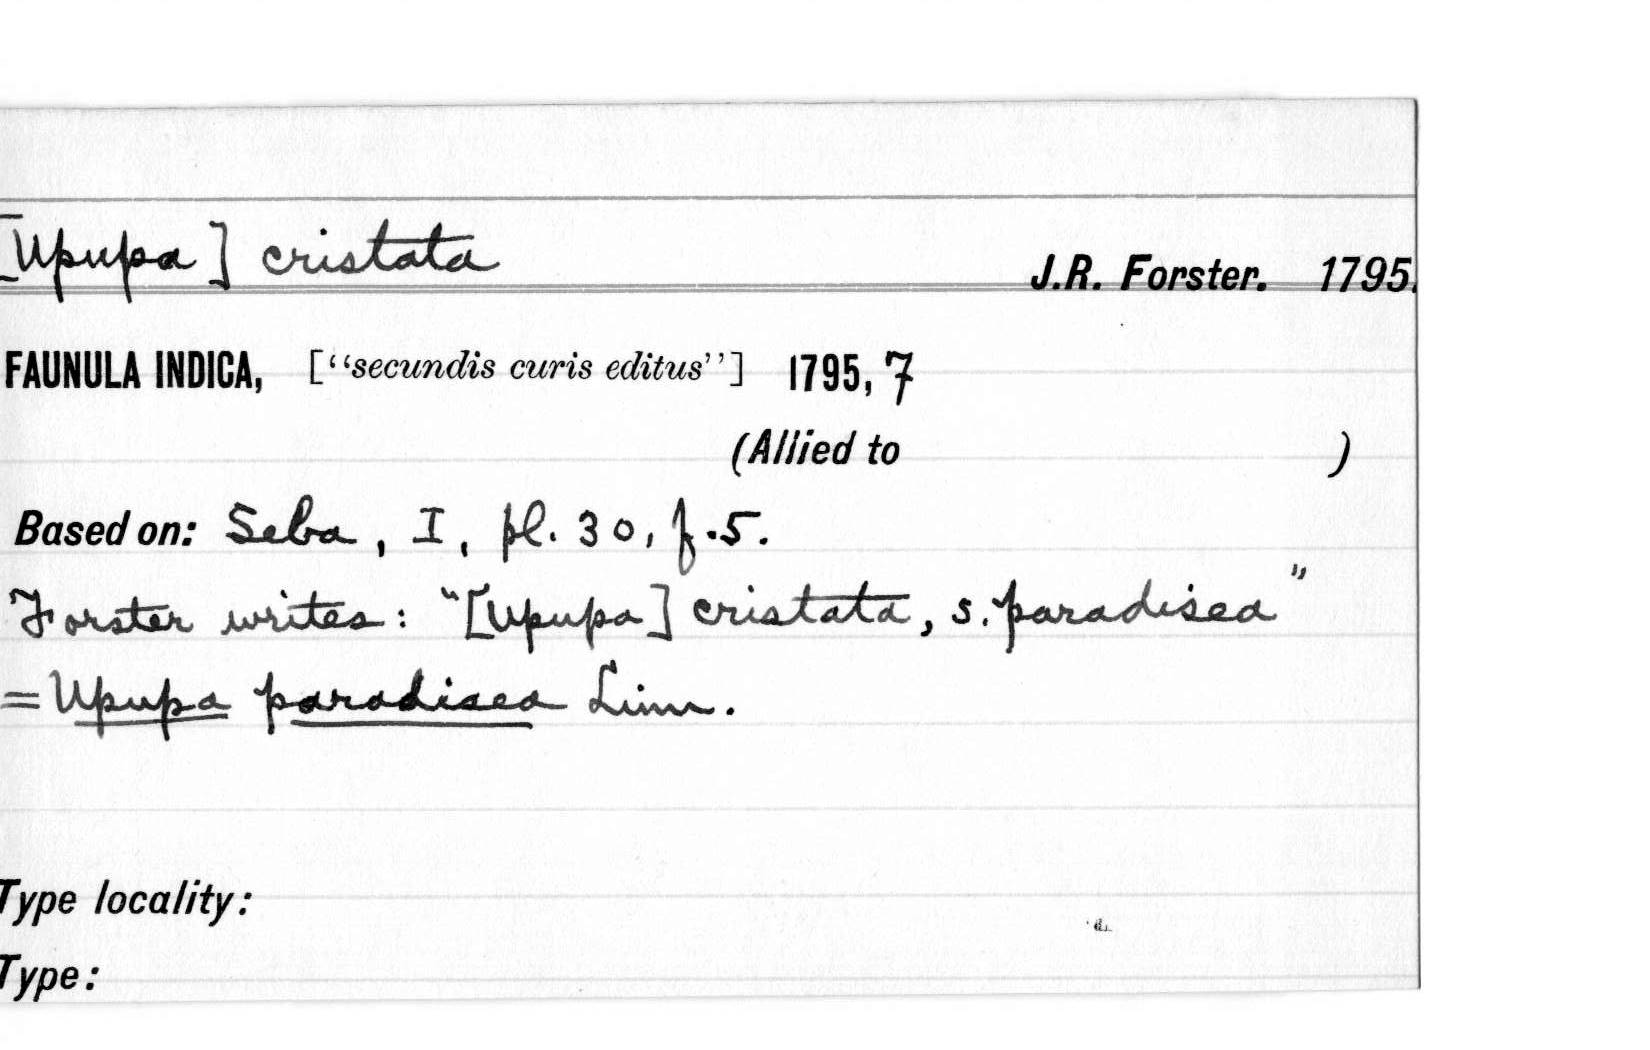 [Upupa] cristata J.R. Forster. 1795.
FAUNULA INDICA, [“secundis curis editus”] 1795, 7
(Allied to )
Based on: Seba, I, pl. 30, f. 5.
Forster writes: "[Upupa] cristata, s. paradisea"
= Upupa paradisea Linn.
Type locality:
Type: